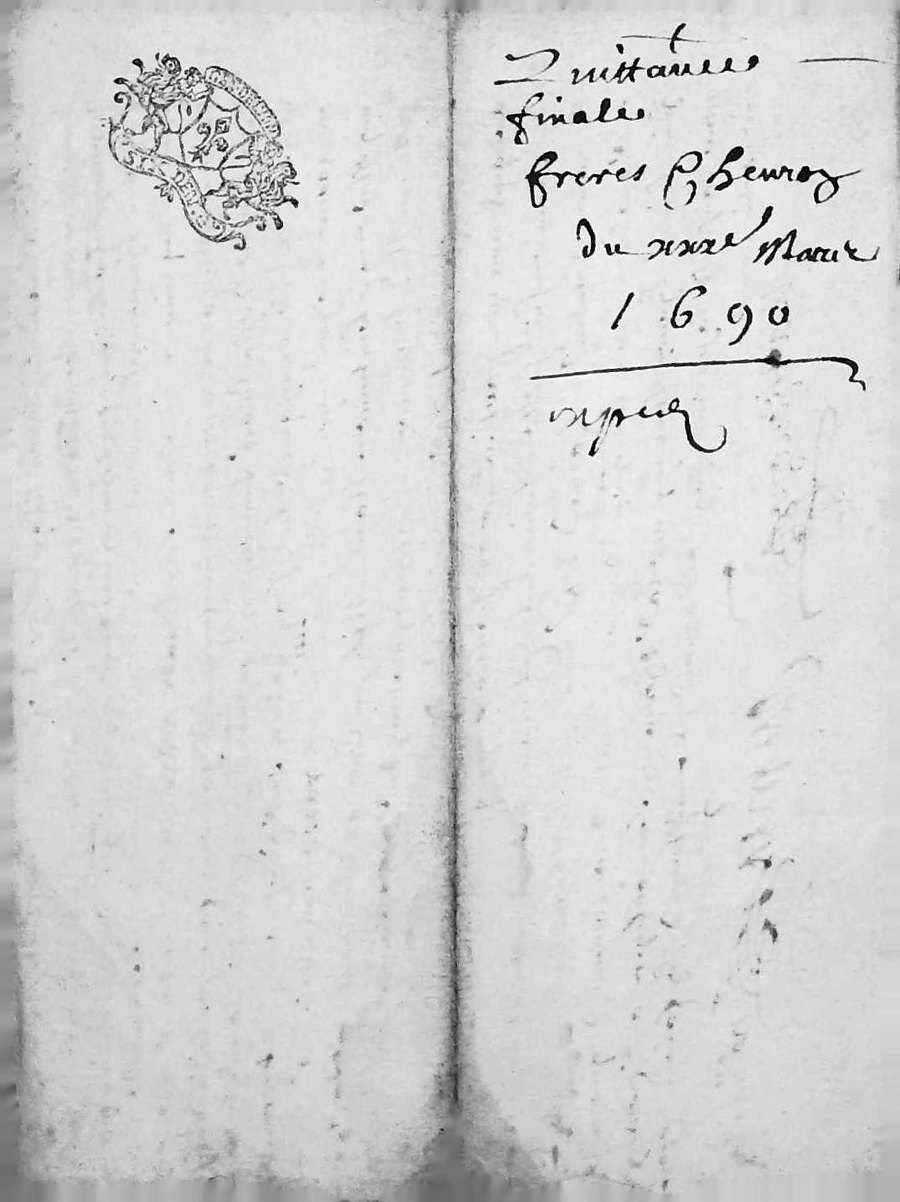 Quittance
finale
freres & henroy
du xxxe Mars
1690
expedi